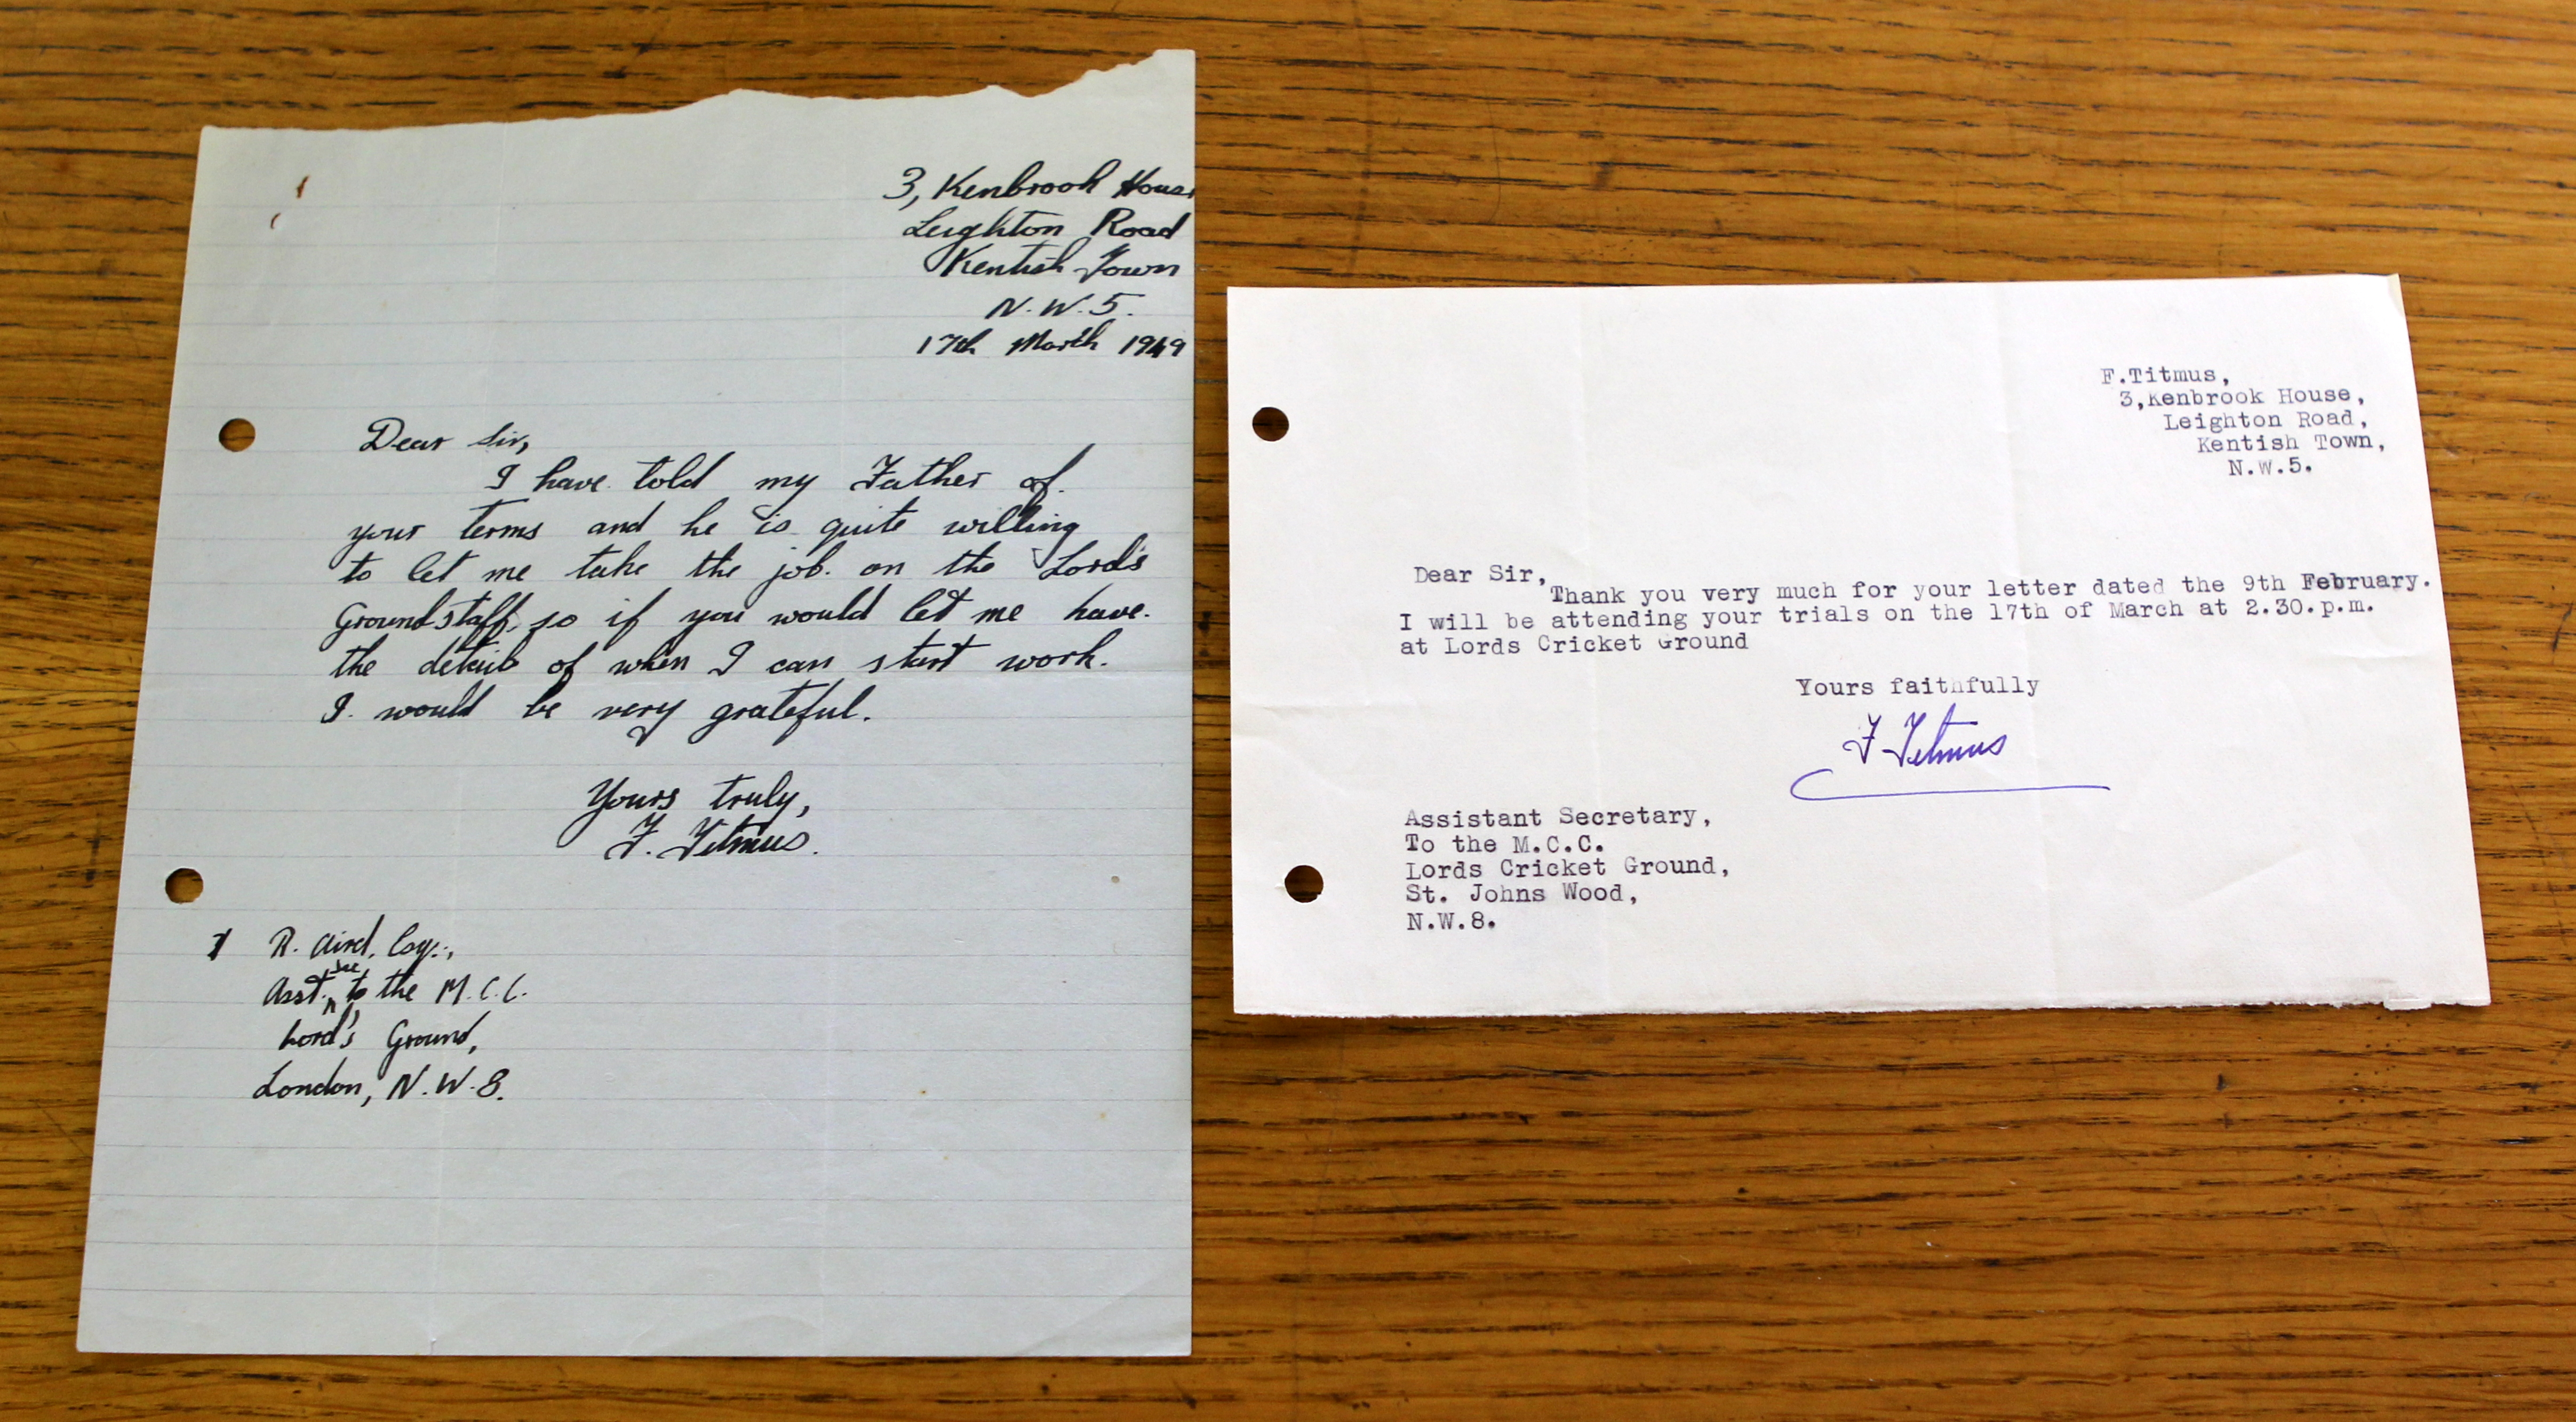 3, Kenbrook House
Leighton Road
Kentish Town
N.W.5.
17th March 1949
Dear Sir,
I have told my Father of
your terms and he is quite willing
to let me take the job on the Lord's
Groundstaff, so if you would let me have
the details of when I can start work.
I would be very grateful.
Yours truly,
F. Titmus.
R. Aird, Esq.,
Asst. Sec to the M.C.C.
Lord's Ground,
London, N.W.8.
F.Titmus,
3,Kenbrook House,
Leighton Road,
Kentish Town,
N.W.5.
Dear Sir,
Thank you very much for your letter dated the 9th February.
I will be attending your trials on the 17th of March at 2.30.p.m.
at Lords Cricket Ground
Yours faithfully
F Titmus
Assistant Secretary,
To the M.C.C.
Lords Cricket Ground,
St. Johns Wood,
N.W.8.